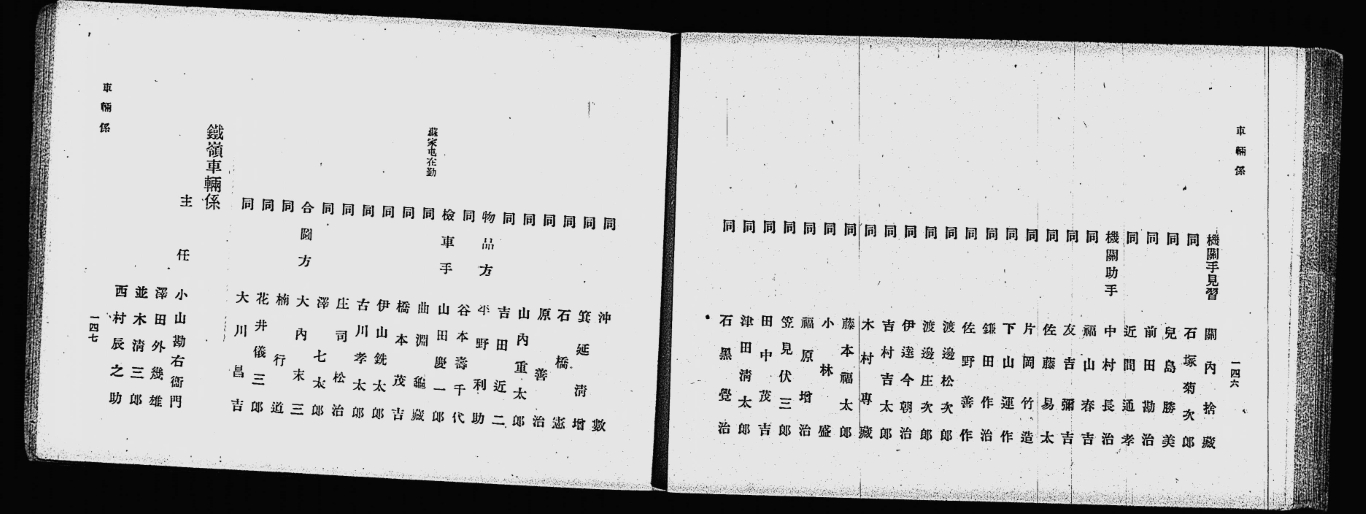 車輛係
一四六
機關手見習 關內捨藏
同 石塚菊次郎
同 兒島勝美
同 前田勘治
同 近間通孝
機關助手 中村長治
同 福山春吉
同 友吉彌吉
同 佐藤易太
同 片岡竹造
同 下山運作
同 鎌田作治
同 佐野善作
同 渡邊松次郎
同 渡邊庄次郎
同 伊達今朝治
同 吉村吉太郎
同 木村專藏
同 藤本福太郎
同 小林盛
同 福原增治
同 笠見伏三郎
同 田中茂吉
同 津田清太郎
同 石黑覺治
同 沖數
同 箕延清增
同 石橋憲
同 原善治
同 山內重太郎
同 吉田近二
物品方 平野利助
同 谷本壽千代
檢車手 山田慶一郎
蘇家屯在勤
同 曲淵龜藏
同 橋本茂吉
同 伊山銑太郎
同 古川孝太郎
同 庄司松治
同 澤七太郎
合圖方 大內末三
同 楠行道
同 花井儀三郎
同 大川昌吉
鐵嶺車輛係
主任 小山勘右衞門
澤田外幾雄
並木清三郎
西村辰之助
車輛係
一四七